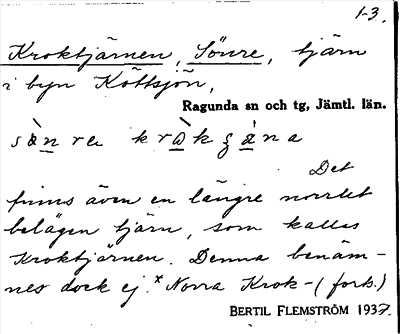 1-3.
Kroktjärnen, Sönre, tjärn
i byn Köttsjön,
Ragunda sn och tg, Jämtl. län.
Det
finns även en längre norrut
belägen tjärn, som kallas
Kroktjärnen. Denna benäm-
nes dock ej *Norra Krok-(forts.)
BERTIL FLEMSTRÖM 1937.